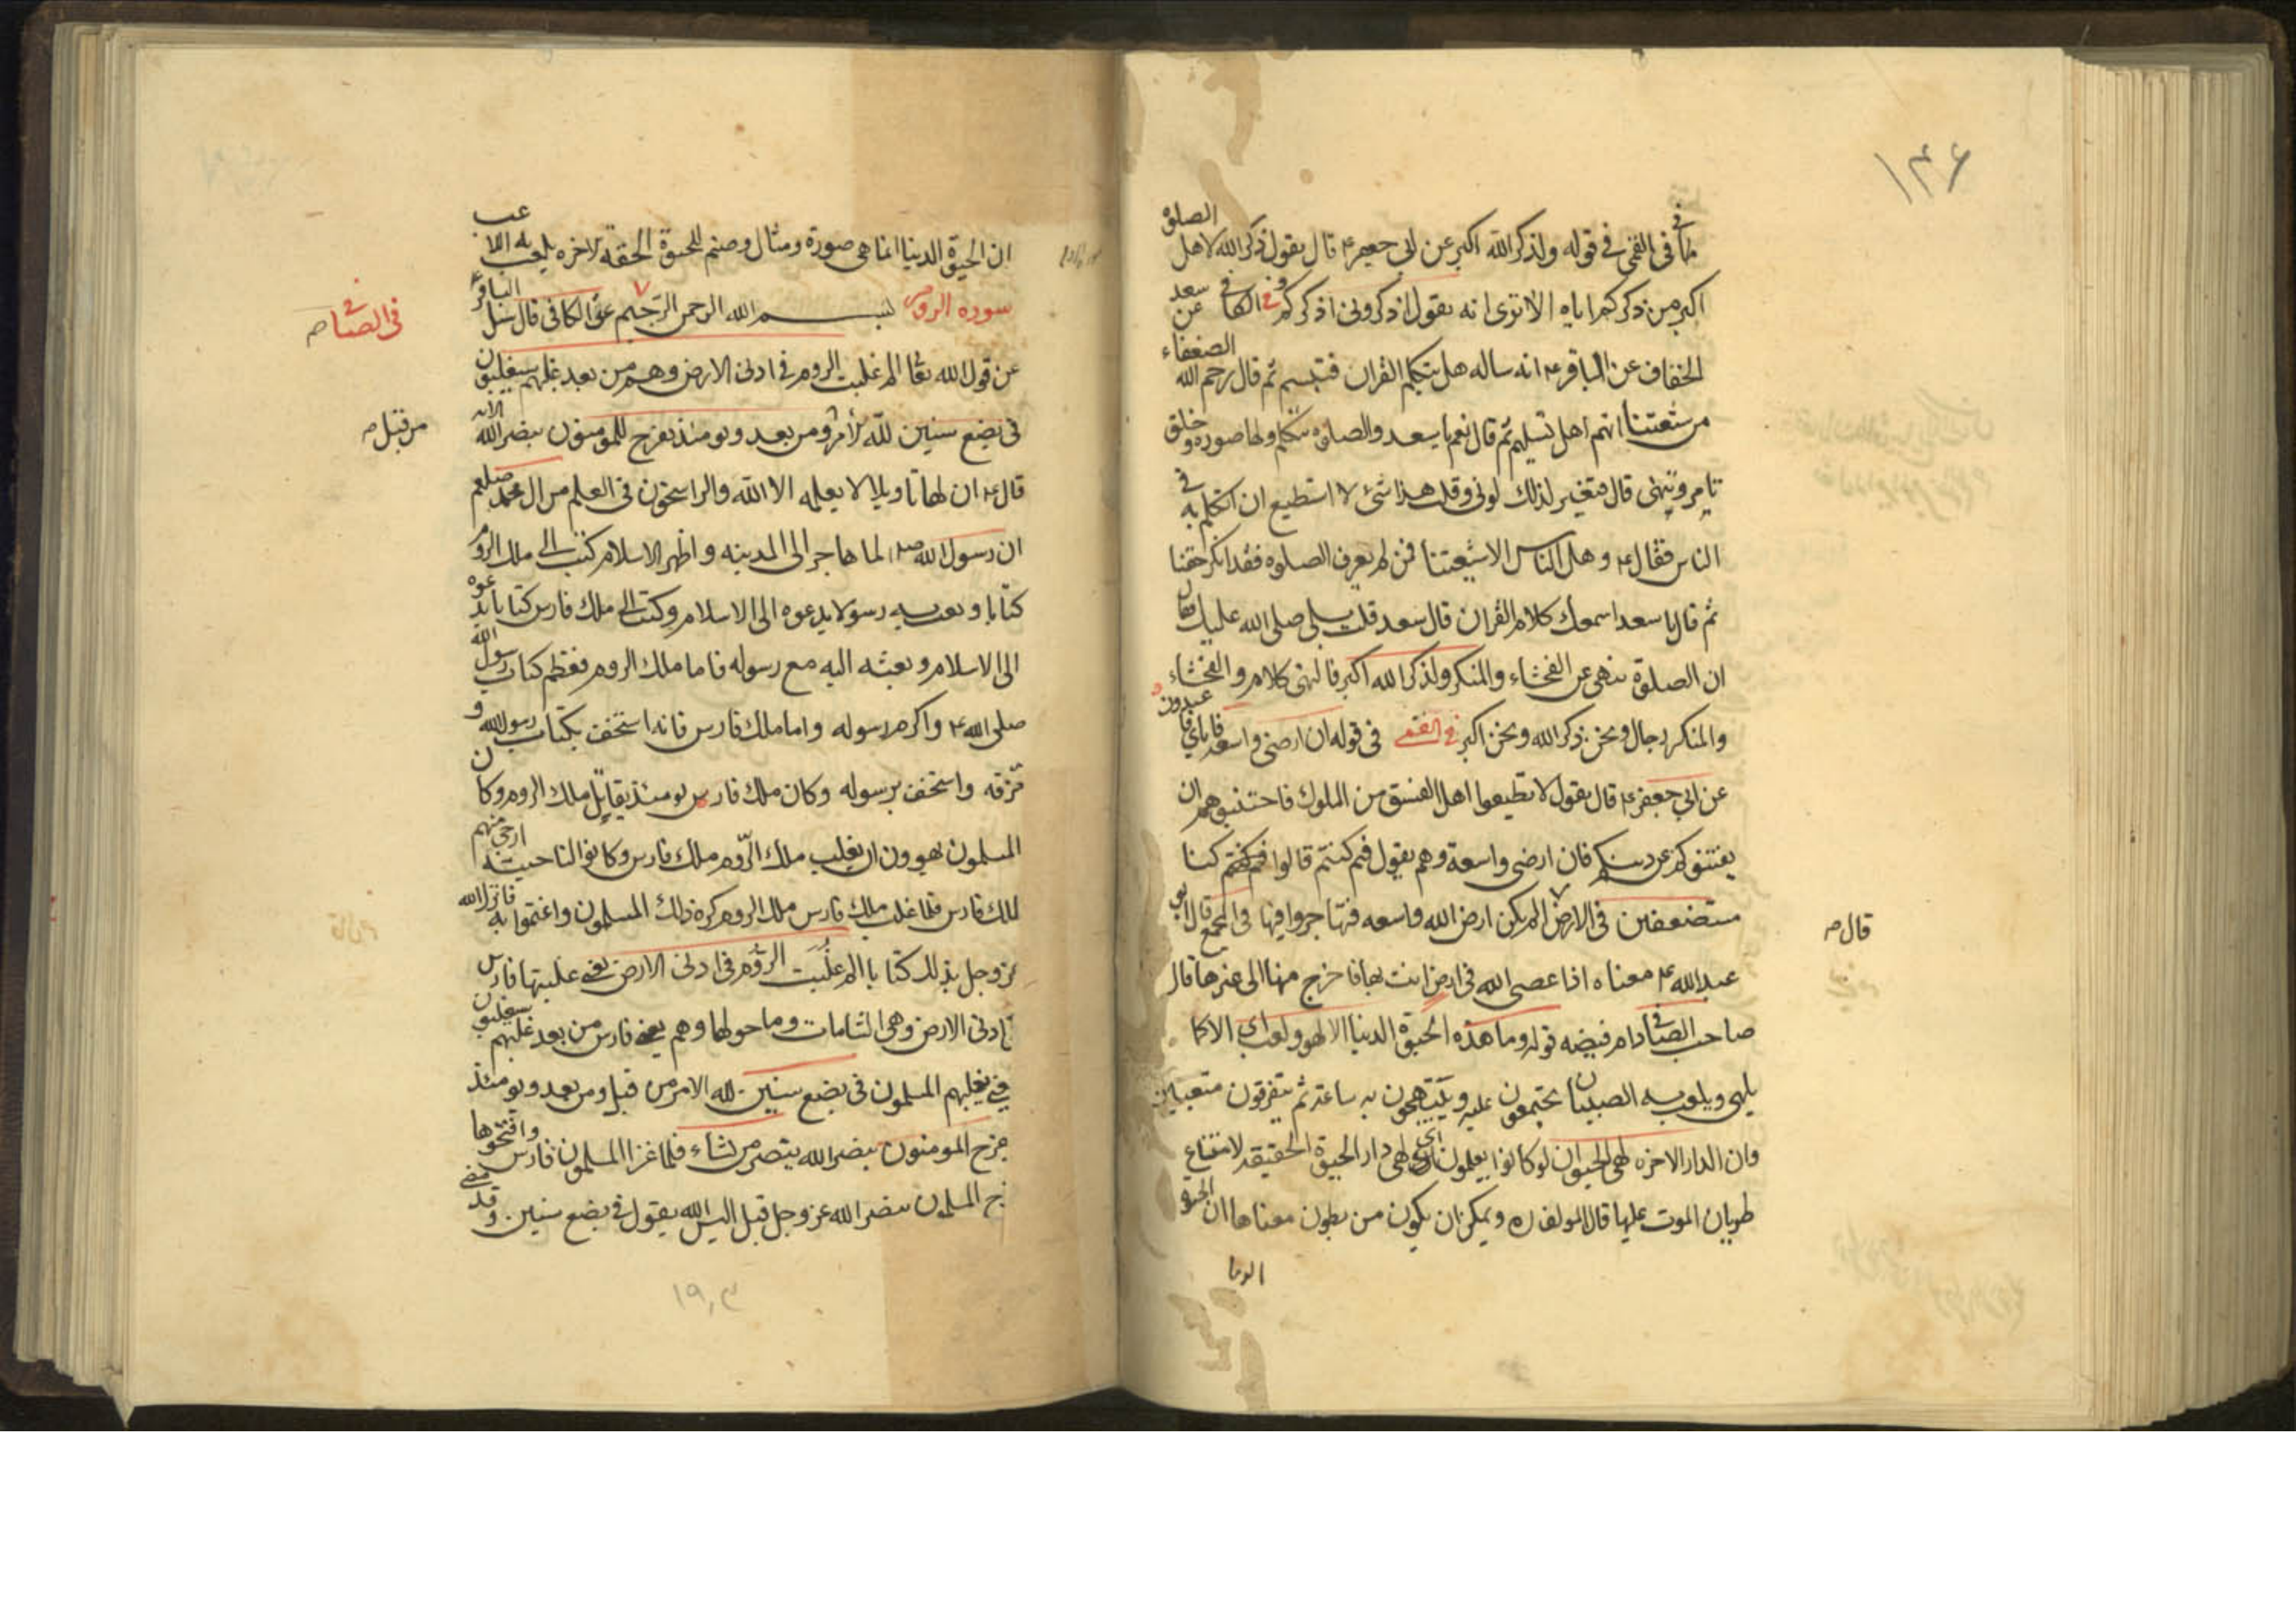 ١٣٤
كما في القمي في قوله ولذكر الله اكبر عن ابي جعفر ع قال يقول ذكر الله لاهل الصلوة
اكبر من ذكركم اياه الا ترى انه يقول اذكروني اذكركم وفي الكافي عن سعد
الخفاف عن الباقر ع انه ساله هل يتكلم القران فتبسم ثم قال رحم الله الضعفاء
من شيعتنا انهم اهل تسليم ثم قال نعم يا سعد والصلوة تتكلم ولها صورة وخلق
تامر وتنهى قال فتغير لذلك لوني وقلت هذا شئ لا استطيع ان اتكلم به في
الناس فقال ع وهل الناس الا شيعتنا فمن لم يعرف الصلوة فقد انكر حقنا
ثم قال يا سعد اسمعك كلام القران قال سعد قلت بلى صلى الله عليك قال
ان الصلوة تنهى عن الفحشاء والمنكر ولذكر الله اكبر فالنهي كلام والفحشاء
والمنكر رجال ونحن ذكر الله ونحن اكبر في القمي في قوله ان ارضي واسعة فاياي فاعبدون
عن ابي جعفر ع قال يقول لا تطيعوا اهل الفسق من الملوك فاحتنبوهم ان
يفتنوكم عن دينكم فان ارضي واسعة وهم يقول فيم كنتم قالوا فيم كنتم كنا
مستضعفين في الارض الم يكن ارض الله واسعه فتهاجروا فيها في المجمع قال ابي
قال
عبد الله ع معناه اذا عصى الله في ارض انت بها فاخرج منها الى غيرها قال
صاحب الصافي دام فيضه قوله وما هذه الحيوة الدنيا الا لهو ولعب اي الا كما
يلهى ويلعب به الصبيان يجتمعون عليه ويبتهجون به ساعة ثم يتفرقون متعبين
وان الدار الاخره لهي الحيوان لو كانوا يعلمون اي لهي دار الحيوة الحقيقه لامتناع
طريان الموت عليها قال المولف ره ويمكن ان يكون من بطون معناها ان الحيوة
الدنيا
ان الحيوة الدنيا انما هي صورة ومثال وصنم للحيوة الحقه الاخره يلعب به اللاعب
سوره الروم بسم الله الرحمن الرحيم في الكافي قال سئل الباقر ع
في الصافي
عن قول الله تعا الم غلبت الروم في ادنى الارض وهم من بعد غلبهم سيغلبون
في بضع سنين لله الامر ومن بعد ويومئذ يفرح المؤمنون بنصر الله الايه
من قبل
قال ع ان لها تاويلا لا يعلمه الا الله والراسخون في العلم من ال محمد صلعم
ان رسول الله ص لما هاجر الى المدينه واظهر الاسلام كتب الى ملك الروم
كتابا وبعث به رسولا يدعوه الى الاسلام وكتب الى ملك فارس كتابا يدعوه
الى الاسلام وبعثه اليه مع رسوله فاما ملك الروم فعظم كتاب رسول الله
صلى الله ع واكرم رسوله واما ملك فارس فانه استخف بكتاب رسول الله و
مزقه واستخف برسوله وكان ملك فارس يومئذ يقاتل ملك الروم وكان
المسلمون يهوون ان يغلب ملك الروم ملك فارس وكانوا لناحيته ارجى منهم
لملك فارس فلما غلب ملك فارس ملك الروم كره ذلك المسلمون واغتموا به فانزل الله
عز وجل بذلك كتابا الم غلبت الروم في ادنى الارض يعني غلبتها فارس
في ادنى الارض وهي الشامات وما حولها وهم يعني فارس من بعد غلبهم سيغلبون
يعني يغلبهم المسلمون في بضع سنين لله الامر من قبل ومن بعد ويومئذ
يفرح المومنون بنصر الله ينصر من شاء فلما غزا المسلمون فارس وافتتحوها
فرح المسلمون بنصر الله عز وجل قيل اليس الله يقول في بضع سنين وقد مضى